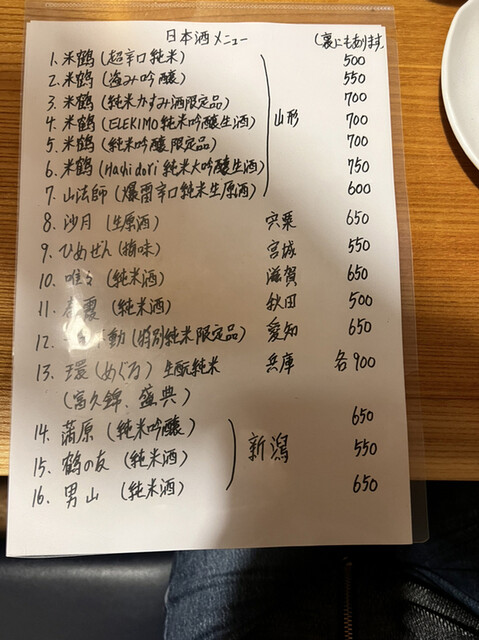 日本酒メニュー (裏にもあります)
1. 米鶴 (超辛口純米) 500
2. 米鶴 (盗み吟醸) 550
3. 米鶴 (純米かすみ酒限定品) 700
4. 米鶴 (ELEKIMO純米吟醸生酒) 山形 700
5. 米鶴 (純米吟醸限定品) 700
6. 米鶴 (Hachidori純米大吟醸生酒) 750
7. 山法師 (爆雷辛口純米生原酒) 600
8. 沙月 (生原酒) 宍粟 650
9. ひめぜん (梅味) 宮城 550
10. 唯々 (純米酒) 滋賀 650
11. 春霞 (純米酒) 秋田 500
12. 動 (特別純米限定品) 愛知 650
13. 環 (めぐる) 生酛純米 兵庫 各900
(富久錦、盛典)
14. 蒲原 (純米吟醸) 650
15. 鶴の友 (純米酒) 新潟 550
16. 男山 (純米酒) 650